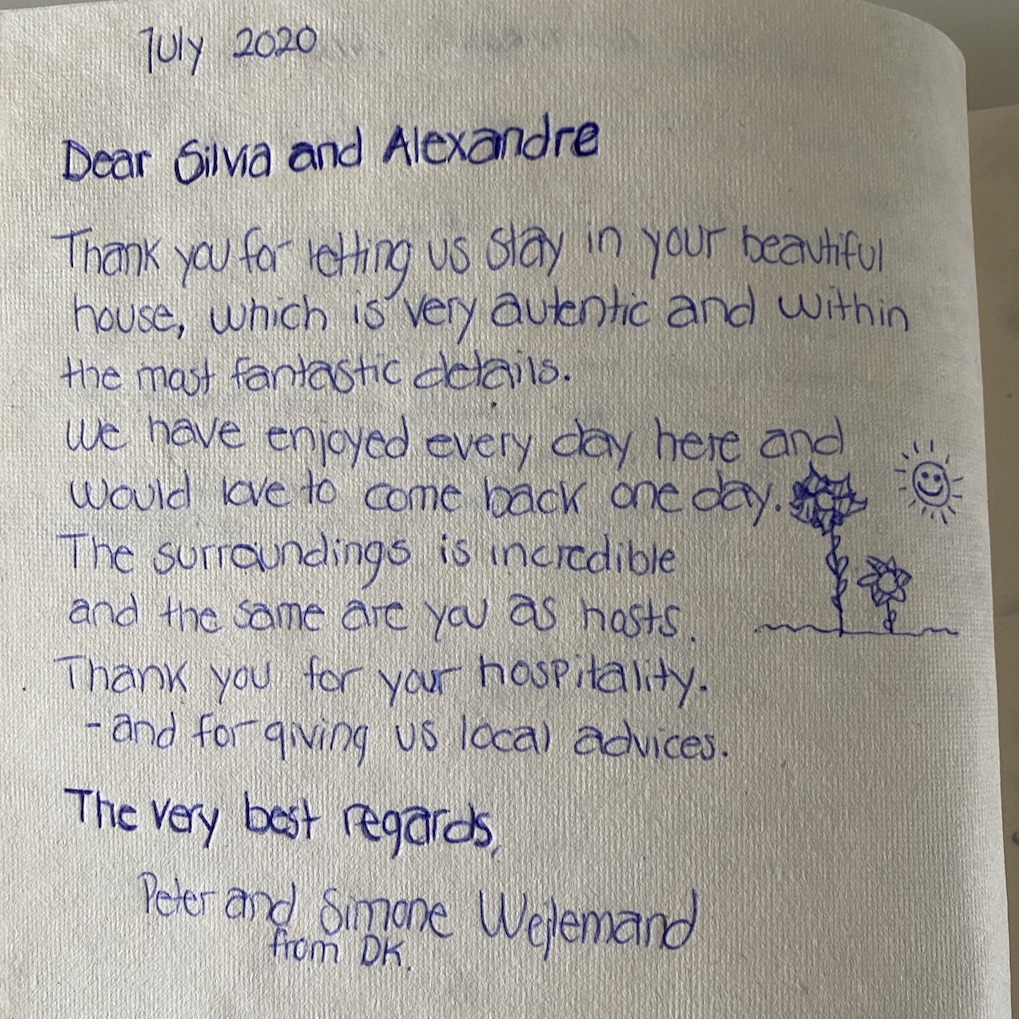 July 2020
Dear Silvia and Alexandre
Thank you for letting us stay in your beautiful
house, which is very autentic and within
the most fantastic details.
We have enjoyed every day here and
would love to come back one day.
The surroundings is incredible
and the same are you as hosts.
Thank you for your hospitality.
- and for giving us local advices.
The very best regards,
Peter and Simone Wejlemand
from DK.